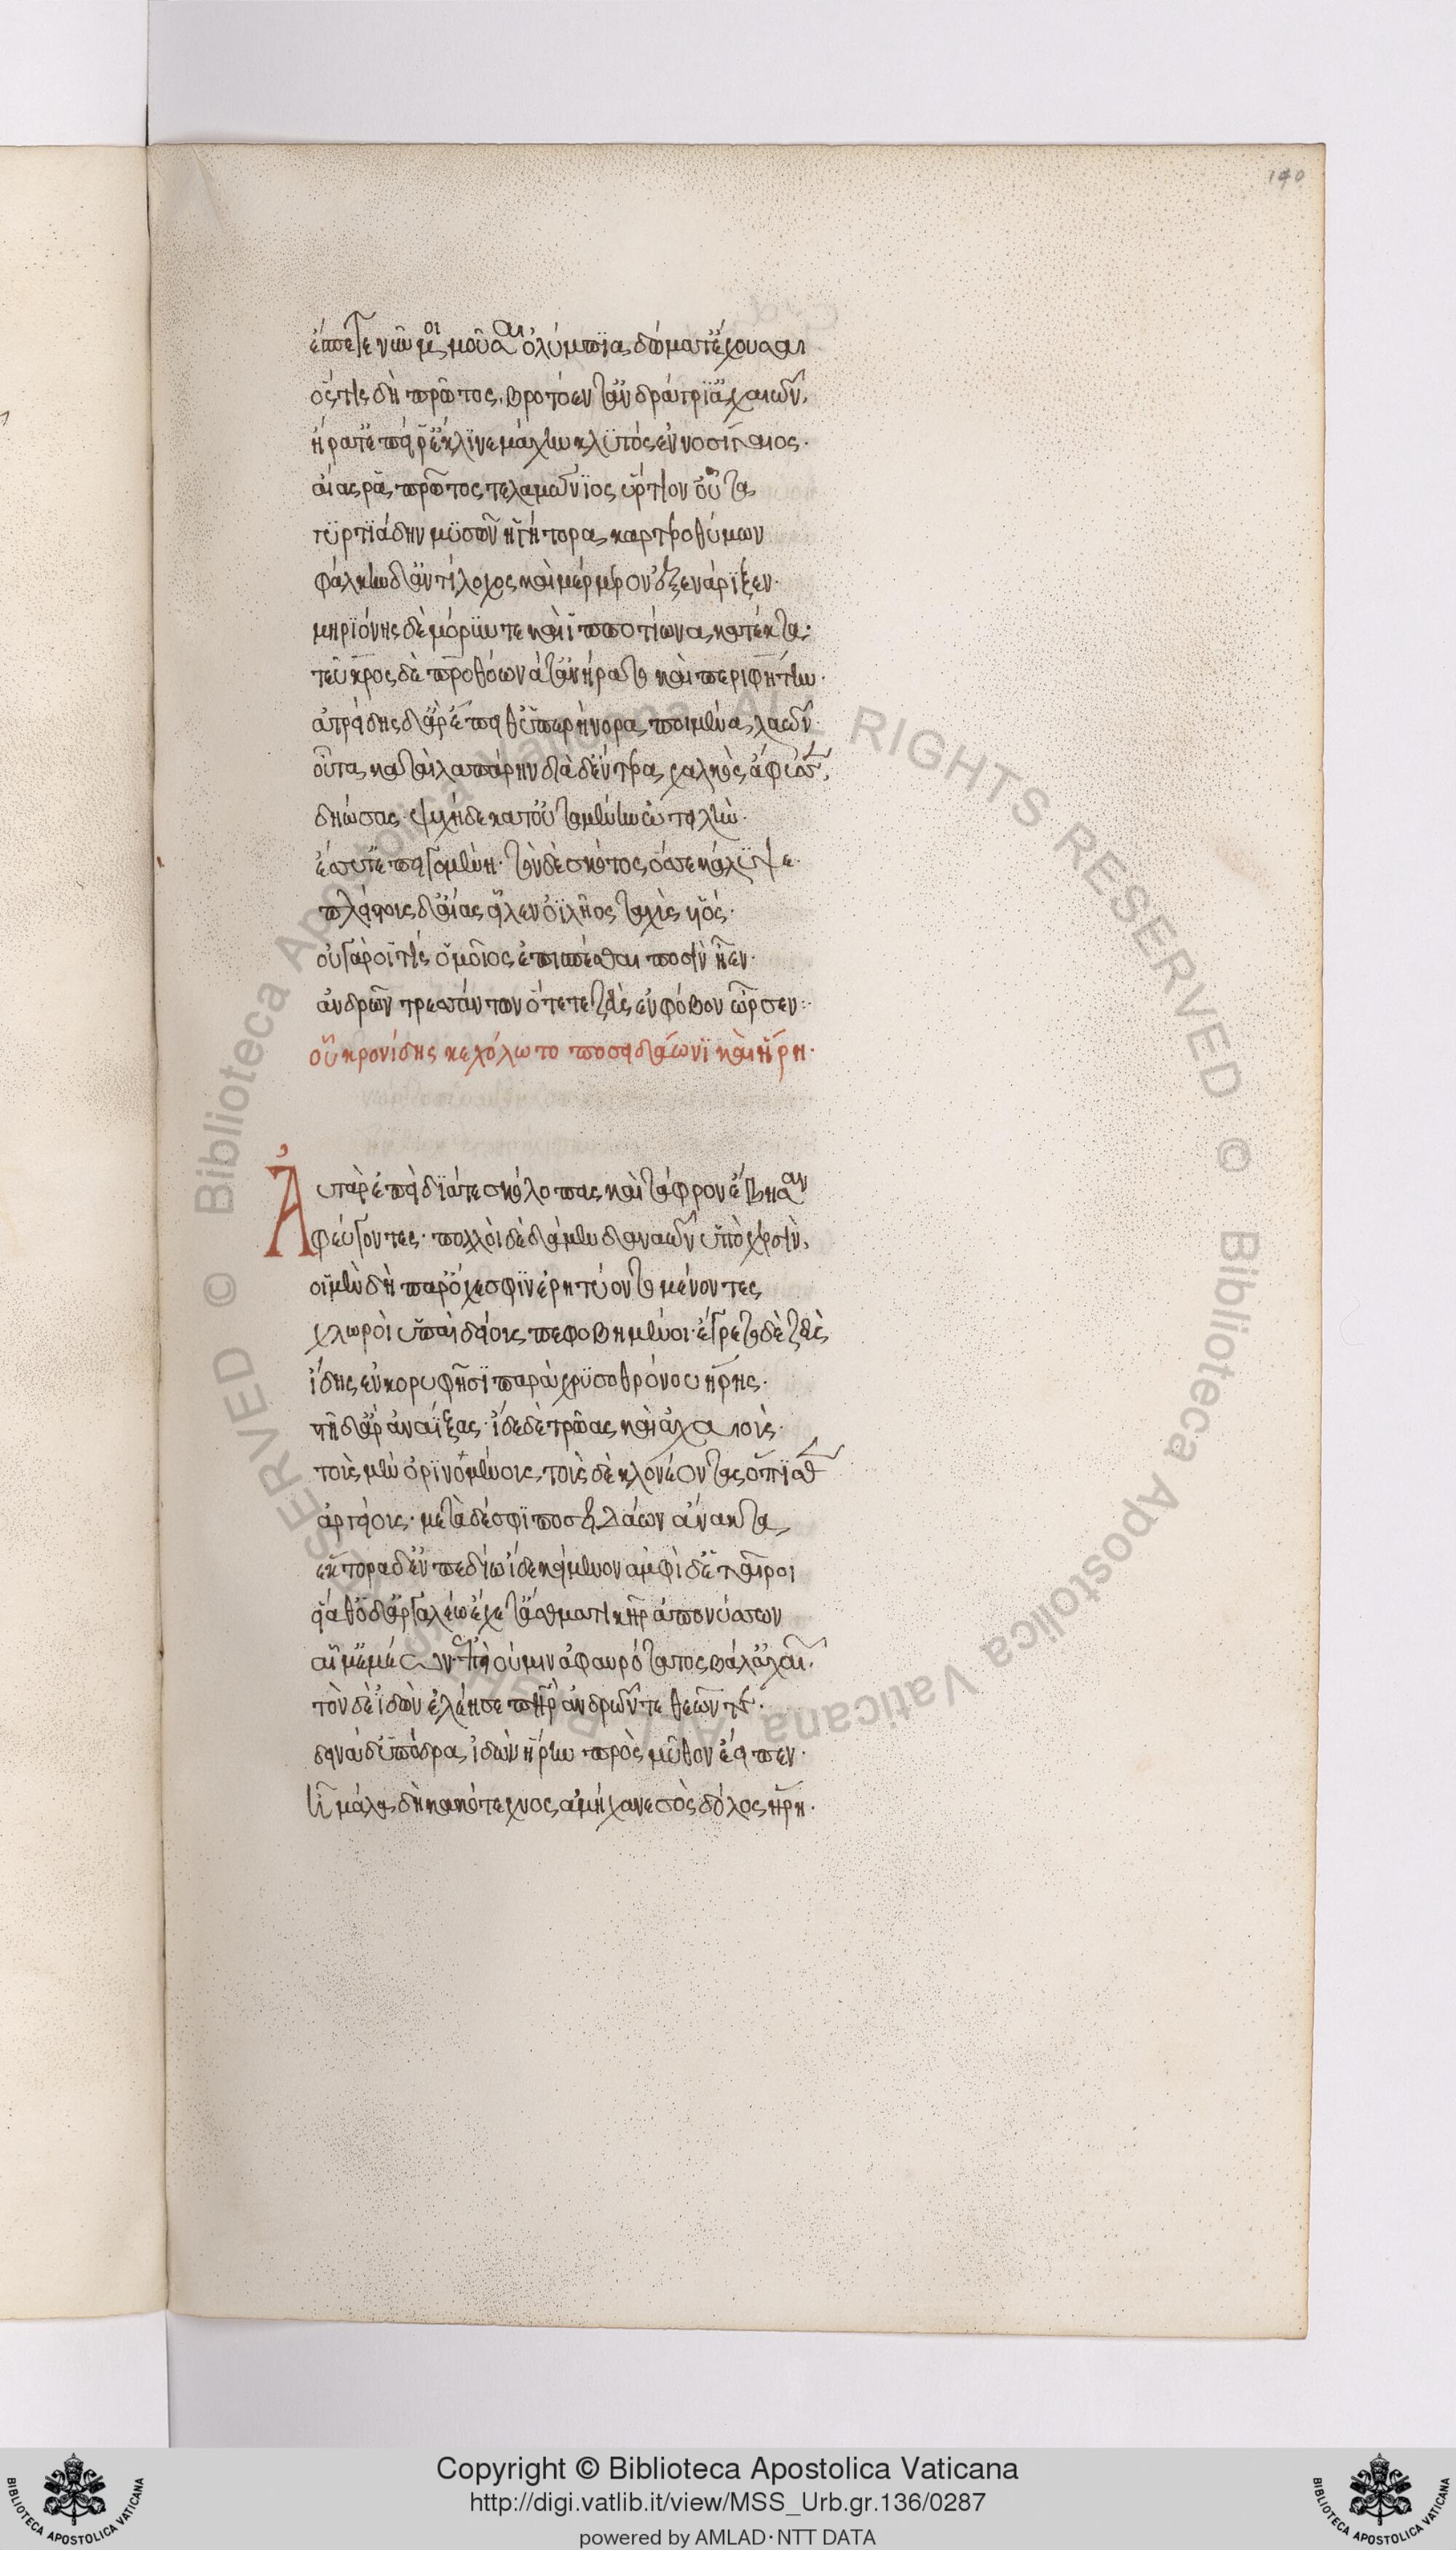 140
ἔσπετε νῦν μοι μοῦσαι ὀλύμπϊα δώματ' ἔχουσαι
ὅς τις δὴ πρῶτος βροτόεντ' ἀνδράγρι' ἀχαιῶν,
ἤρατ' ἐπεί ῥ' ἔκλϊνε μάχην κλϋτὸς ἐννοσίγαιος·
αἴας ῥα πρῶτος τελαμώνϊος ὕρτιον οὖτα
γϋρτϊάδην μϋσῶν ἡγήτορα καρτεροθύμων
φάλκην δ' ἀντίλοχος καὶ μέρμερον ἐξενάρϊξεν·
μηρϊόνης δὲ μόρϋν τε καὶ ἱπποτίωνα κατέκτα·
τεῦκρος δὲ προθόωνά τ' ἀνήρατο καὶ περιφήτην·
ἀτρείδης δ' ἄρ' ἔπειθ' ὑπερήνορα ποιμένα λαῶν
οὖτα κατὰ λαπάρην διὰ δ' ἔντερα χαλκὸς ἄφυσσε,
δηώσας· ψυχὴ δὲ κατ' οὐταμένην ὠτειλὴν·
ἔσσυτ' ἐπειγομένη· τὸν δὲ σκότος ὄσσε κάλϋψε·
πλείστους δ' αἴας εἷλεν ὀϊλῆος ταχὺς υἱός·
οὐ γάρ οἵ τις ὅμοιος ἐπισπέσθαι ποσὶν ἦεν·
ἀνδρῶν τρεσσάντων ὅτε τε ζεὺς ἐν φόβον ὦρσεν:·
οὖ κρονίδης κεχόλωτο ποσειδάωνϊ καὶ ἥρη·
Αὐτὰρ ἐπεὶ δϊά τε σκόλοπας καὶ τάφρον ἔβησαν
φεύγοντες· πολλοὶ δὲ δάμεν δαναῶν ὑπὸ χερσὶν,
οἱ μὲν δὴ παρ' ὄχεσφϊν ἐρητύοντο μένοντες
χλωροὶ ὑπαὶ δείους πεφοβημένοι· ἔγρετο δὲ ζεὺς
ἴδης ἐν κορυφῆσϊ παρὰ χρϋσοθρόνου ἥρης·
στῆ δ' ἄρ' ἀναΐξας· ἴδε δὲ τρῶας καὶ ἀχαιοὺς·
τοὺς μὲν ὀρϊνομένους, τοὺς δὲ κλονέοντας ὄπϊσθεν
ἀργείους· μετὰ δέ σφϊ ποσειδάωνα ἄνακτα,
ἕκτορα δ' ἐν πεδίω ἴδε κείμενον ἀμφὶ δ' ἑταῖροι
εἵαθ' ὁ δ' ἀργαλέω ἔχετ' ἄσθματι κῆρ ἀπονύσσων
αἷμ' ἐμέων· ἐπεὶ οὔ μιν ἀφαυρότατος βάλ' ἀχαιῶν·
τὸν δὲ ἰδὼν ἐλέησε πατὴρ ἀνδρῶν τε θεῶν τε·
δεινὰ δ' ὑπόδρα ἰδὼν ἥρην πρὸς μῦθον ἔειπεν·
ἦ μάλα δὴ κακότεχνος ἀμήχανε σὸς δόλος ἥρη·
Copyright © Biblioteca Apostolica Vaticana
http://digi.vatlib.it/view/MSS_Urb.gr.136/0287
powered by AMLAD·NTT DATA